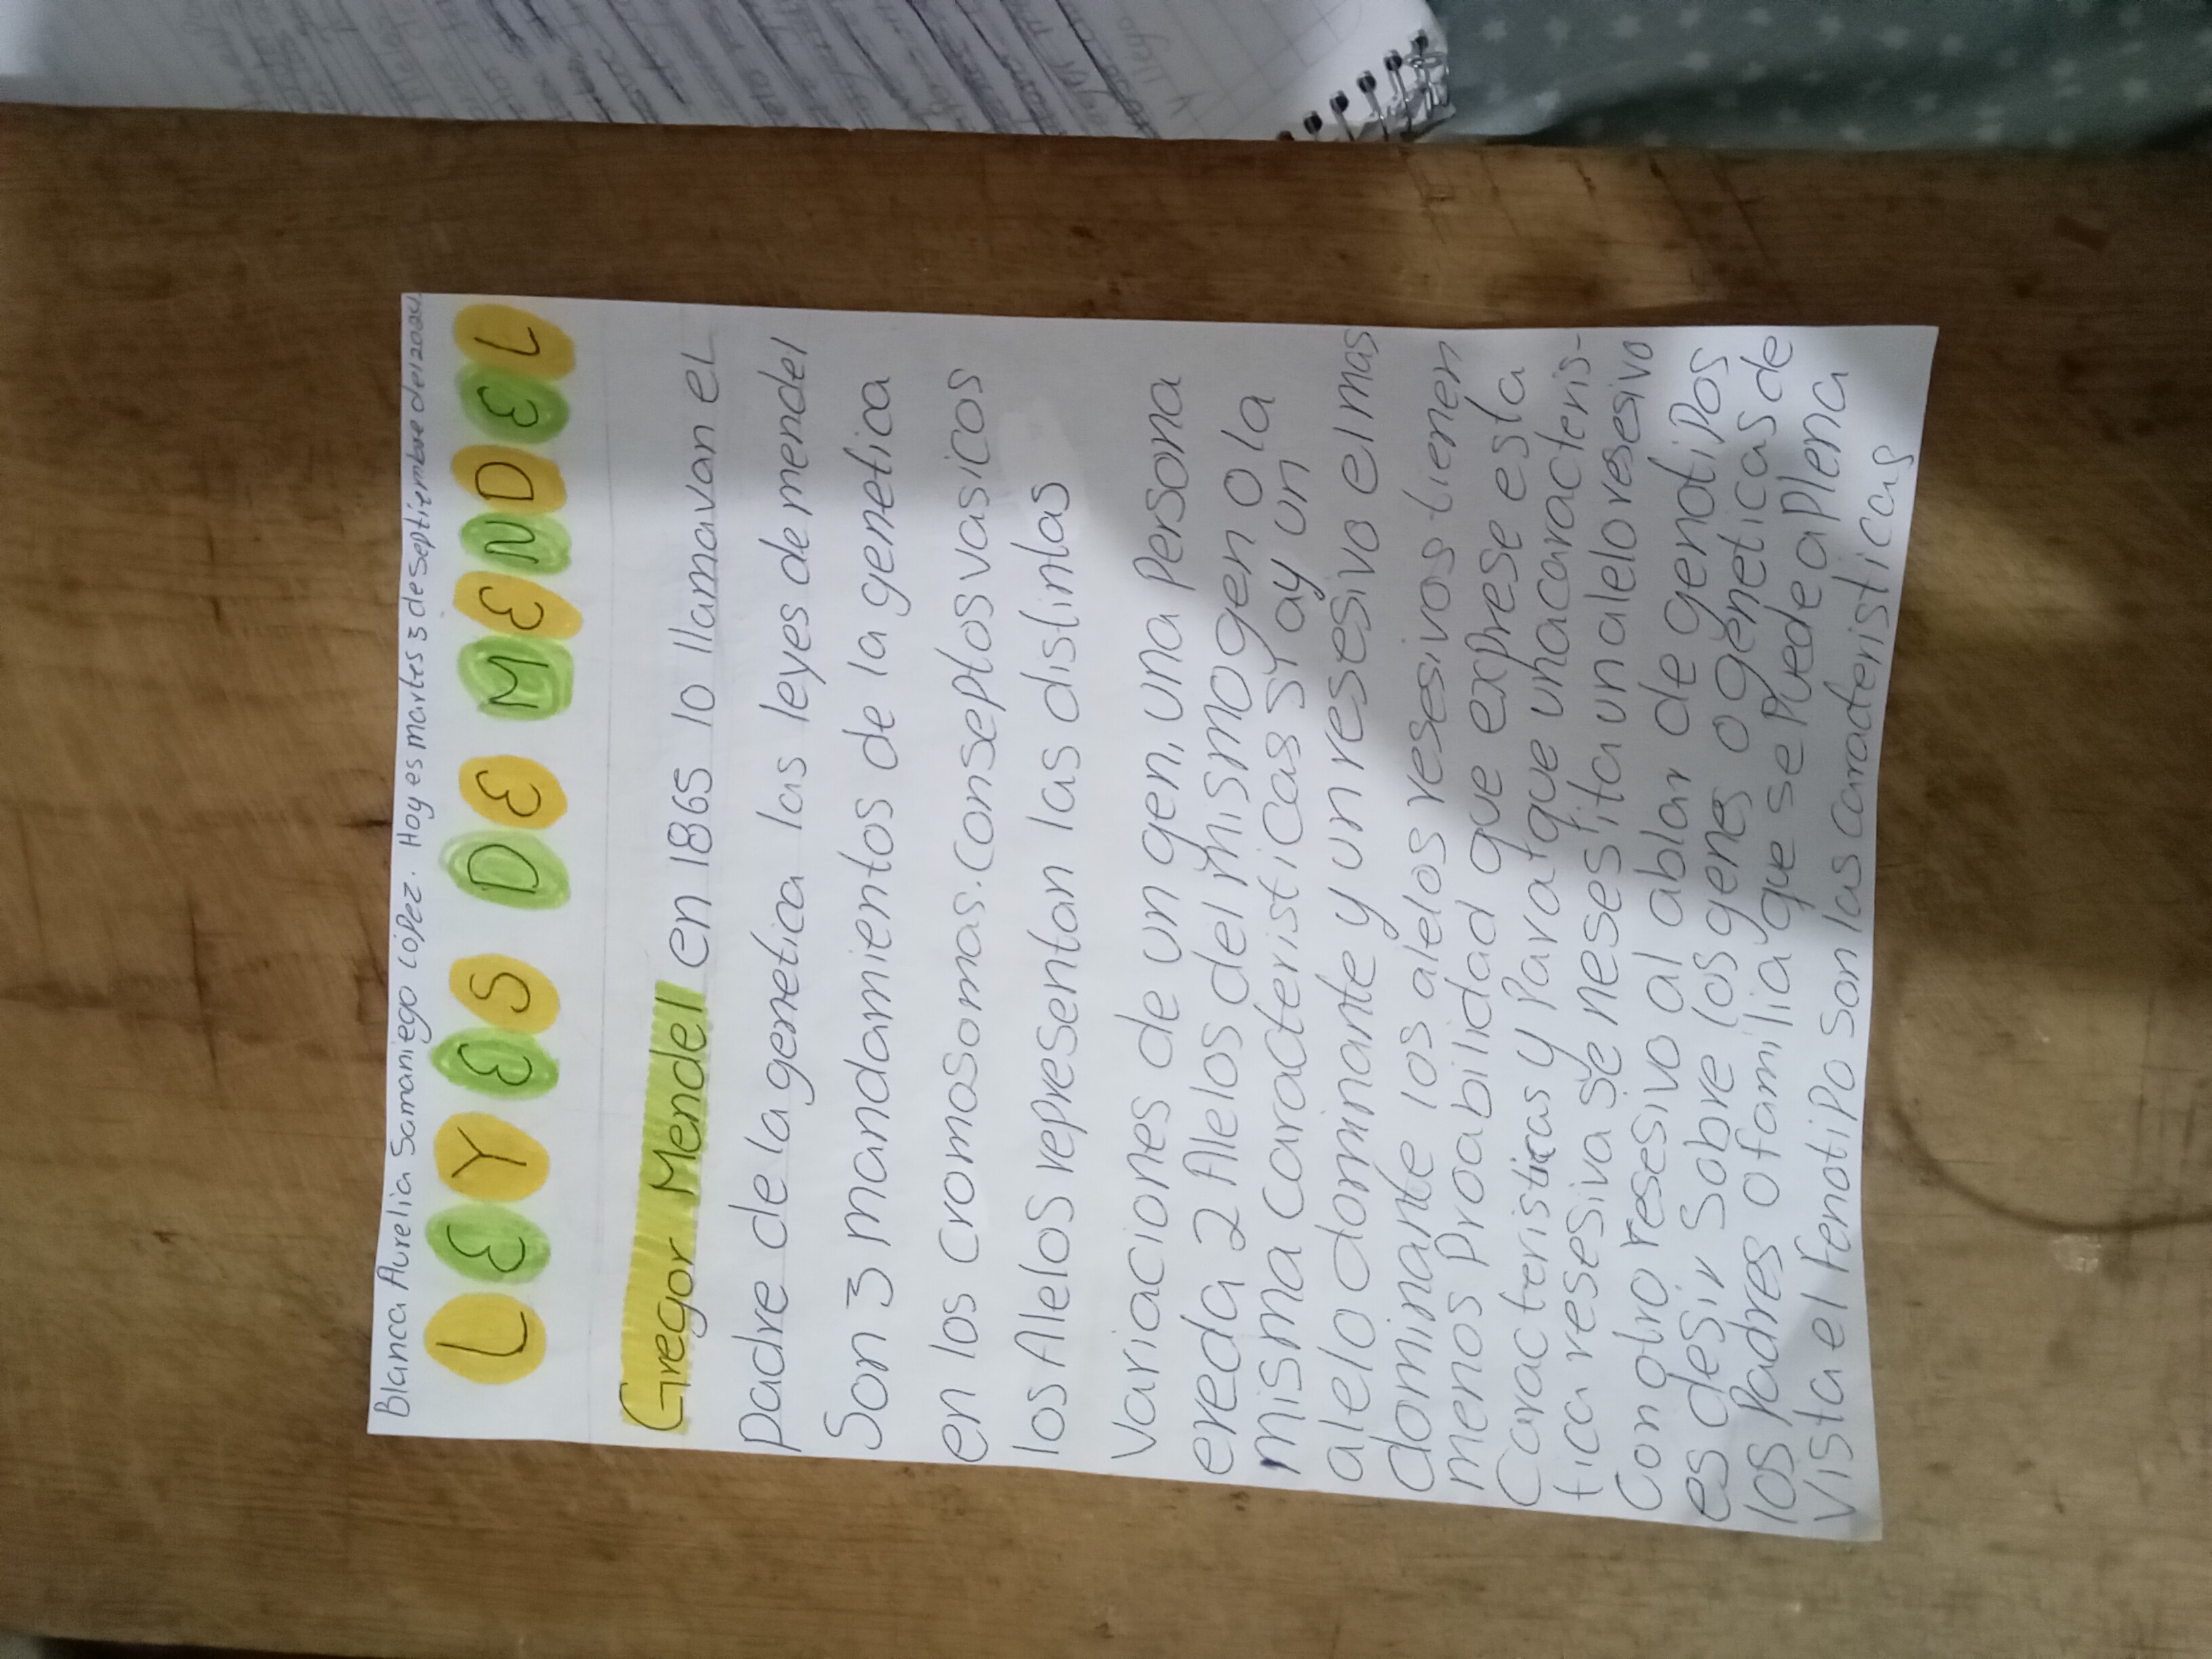 Blanca Aurelia Samaniego López. Hoy es martes 3 de septiembre del 2024.
LEYES DE MENDEL
Gregor Mendel en 1865 lo llamavan el
padre de la genetica las leyes de mendel
Son 3 mandamientos de la genetica
en los cromosomas. conseptos vasicos
los Alelos representan las distintas
Variaciones de un gen, una persona
ereda 2 Alelos del mismo gen o la
misma caracteristicas sy ay un
alelo dominante y un resesivo el mas
dominante los alelos resesivos tienen
menos Proabilidad que exprese esta
Caracteristicas y Para que una caracteris-
tica resesiva se nesesita un alelo resesivo
con otro resesivo al ablar de genotipos
es desir sobre los genes o geneticas de
los Padres o familia que se puede a plena
vista el Fenotipo son las caracteristicas